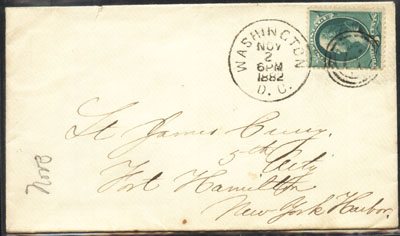 WASHINGTON
NOV
2
6PM
1882
D. C.
Lt James Curry.
5th Arty
Fort Hamilton
New York Harbor.